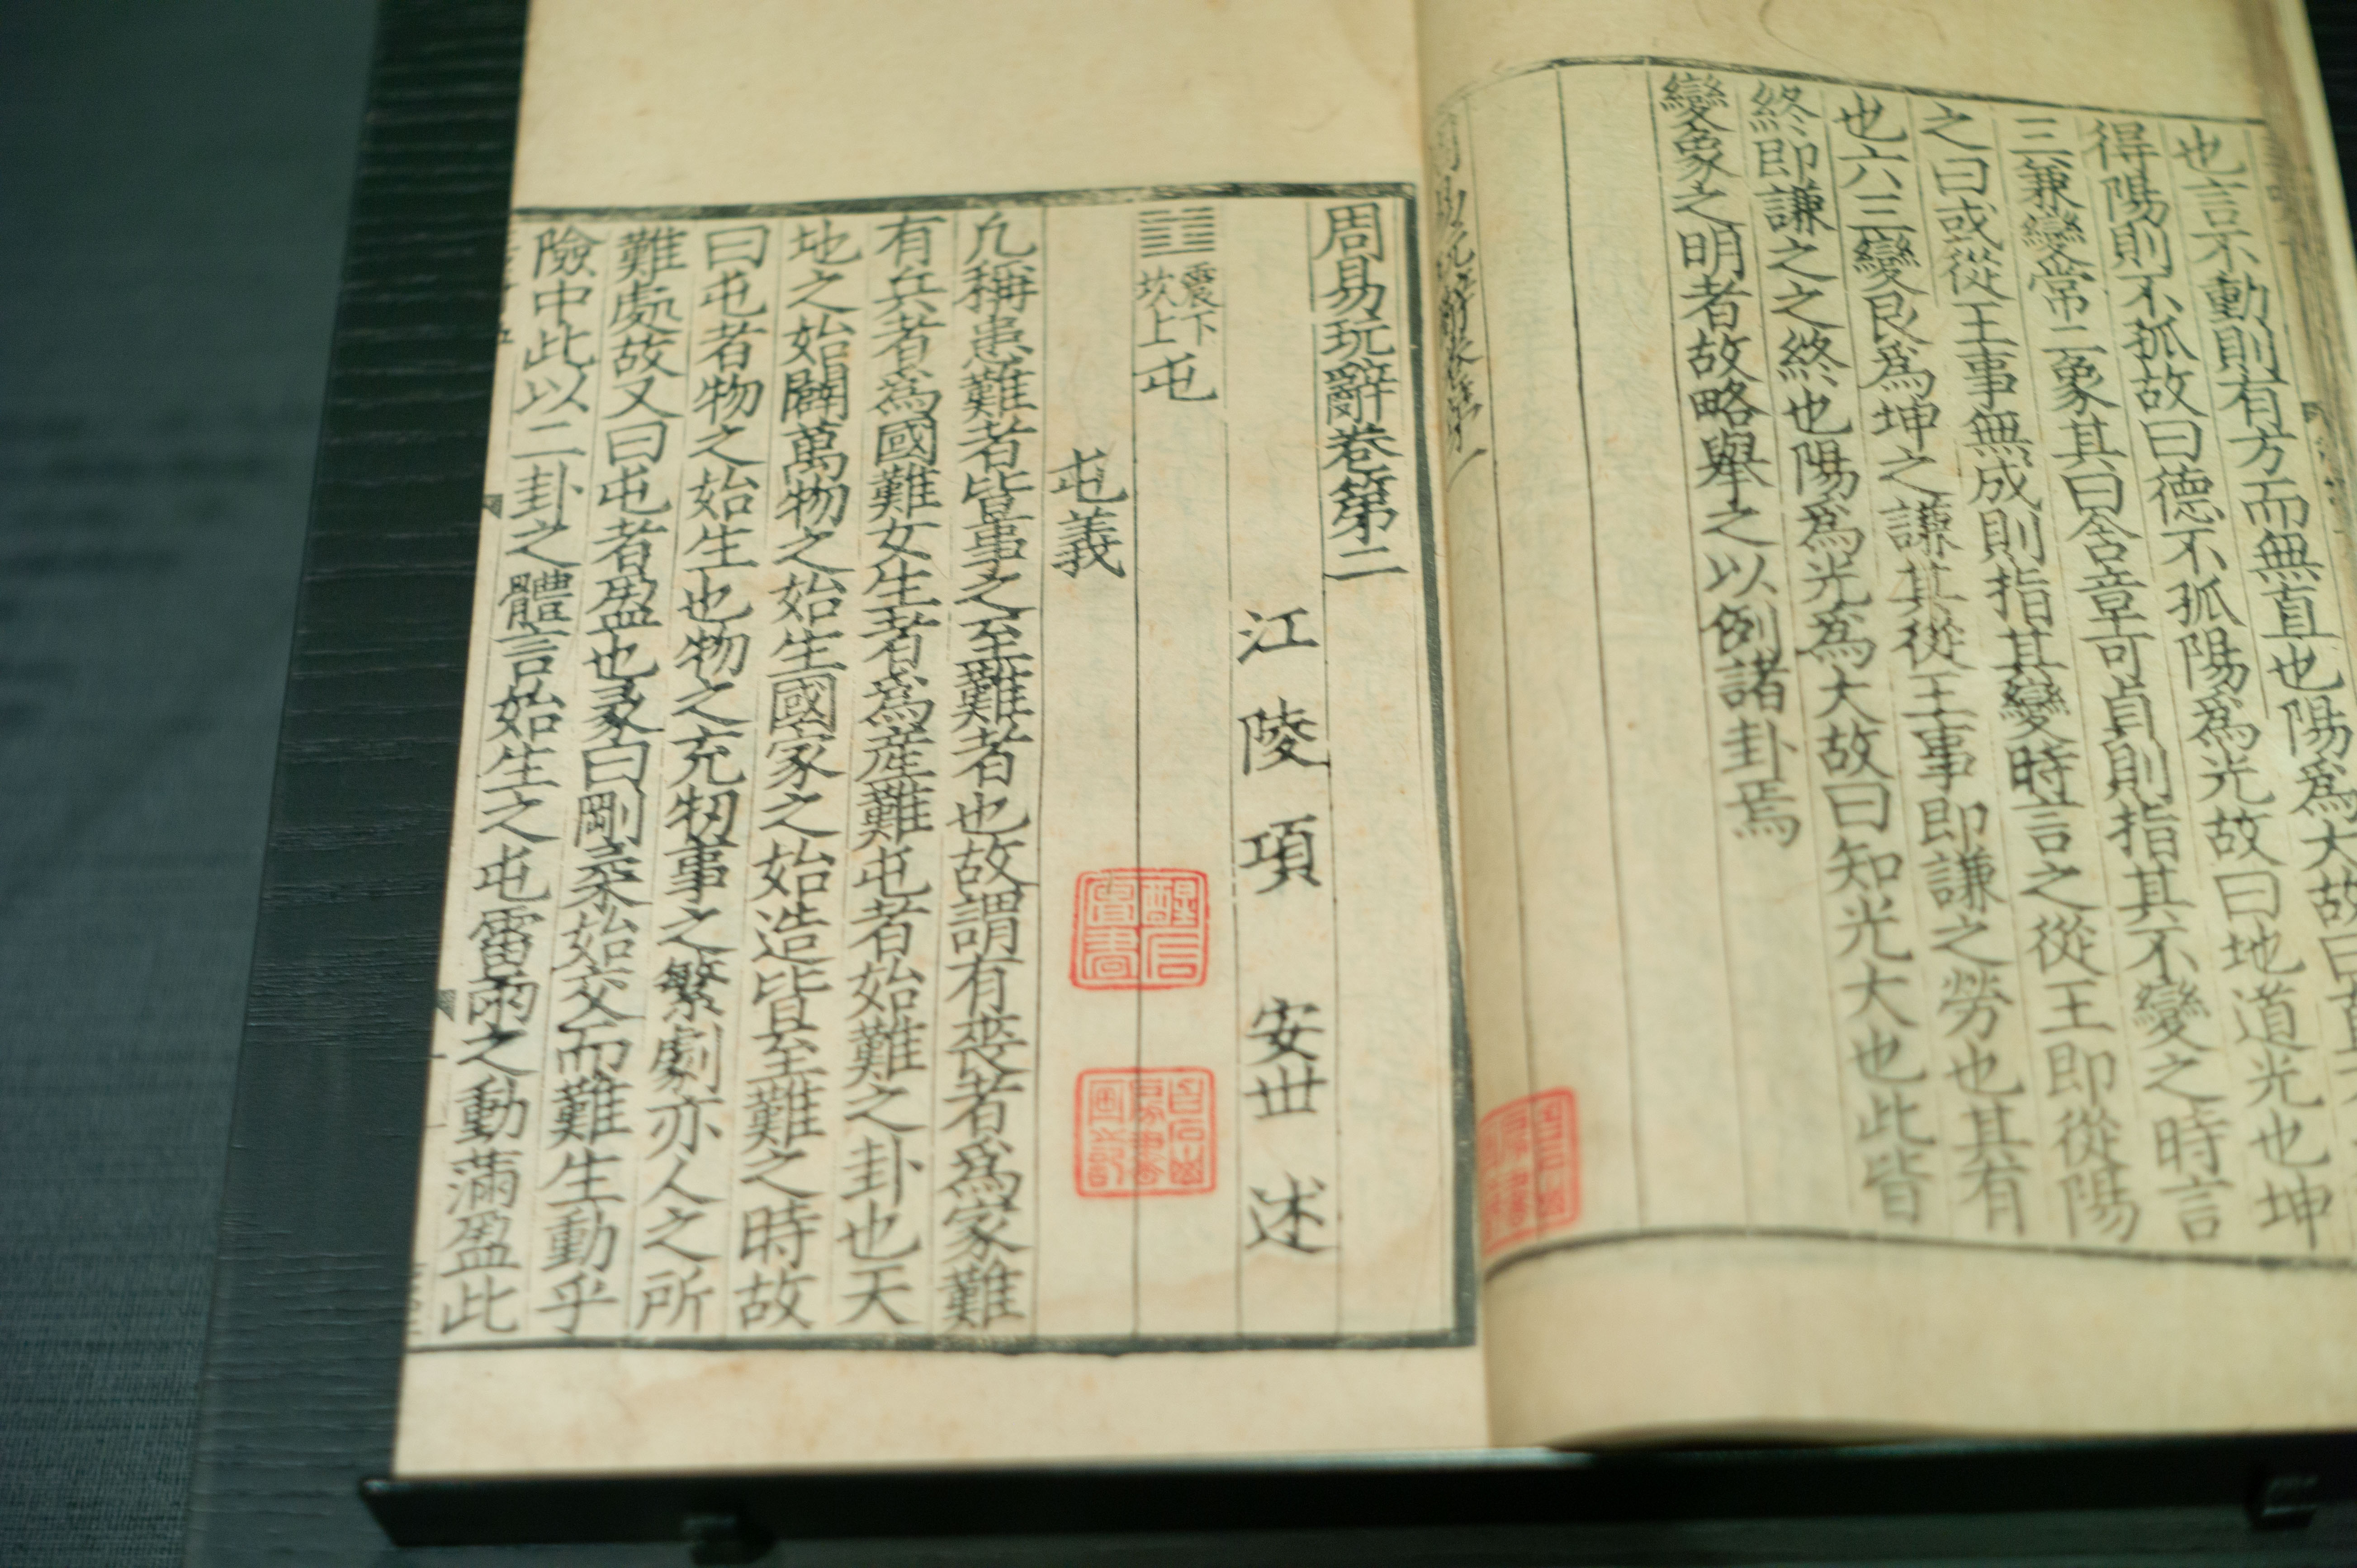 也言不動則有方而無直也陽為大故曰
得陽則不孤故曰德不孤陽為光故曰地道光也坤
三兼變常二象其曰含章可貞則指其不變之時言
之曰或從王事無成則指其變時言之從王即從陽
也六三變艮為坤之謙其從王事即謙之勞也其有
終即謙之之終也陽為光為大故曰知光大也此皆
變象之明者故略舉之以例諸卦焉
周易玩辭卷第一
周易玩辭卷第二
江陵項安世述
震下
坎上
屯
屯義
凡稱患難者皆事之至難者也故謂有喪者為家難
有兵者為國難女生者為産難屯者始難之卦也天
地之始闢萬物之始生國家之始造皆至難之時故
曰屯者物之始生也物之充牣事之繁劇亦人之所
難處故又曰屯者盈也彖曰剛柔始交而難生動乎
險中此以二卦之體言始生之屯雷雨之動滿盈此